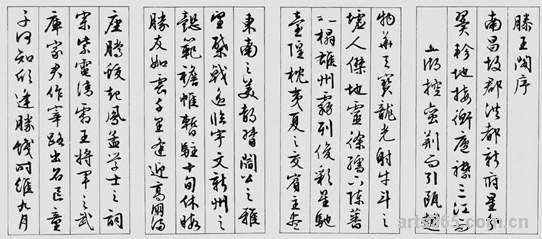 滕王阁序
南昌故郡洪都新府星分
翼軫地接衡廬襟三江而
五湖控蛮荆而引瓯越
物華天寶龍光射牛斗之
墟人傑地靈徐孺下陳蕃
之榻雄州霧列俊彩星馳
臺隍枕夷夏之交賓主盡
東南之美都督閻公之雅
望棨戟遥临宇文新州之
懿範襜帷暫駐十旬休暇
勝友如雲千里逢迎高朋滿
座騰蛟起鳳孟学士之詞
宗紫電清霜王将軍之武
庫家君作宰路出名區童
子何知躬逢勝餞时維九月